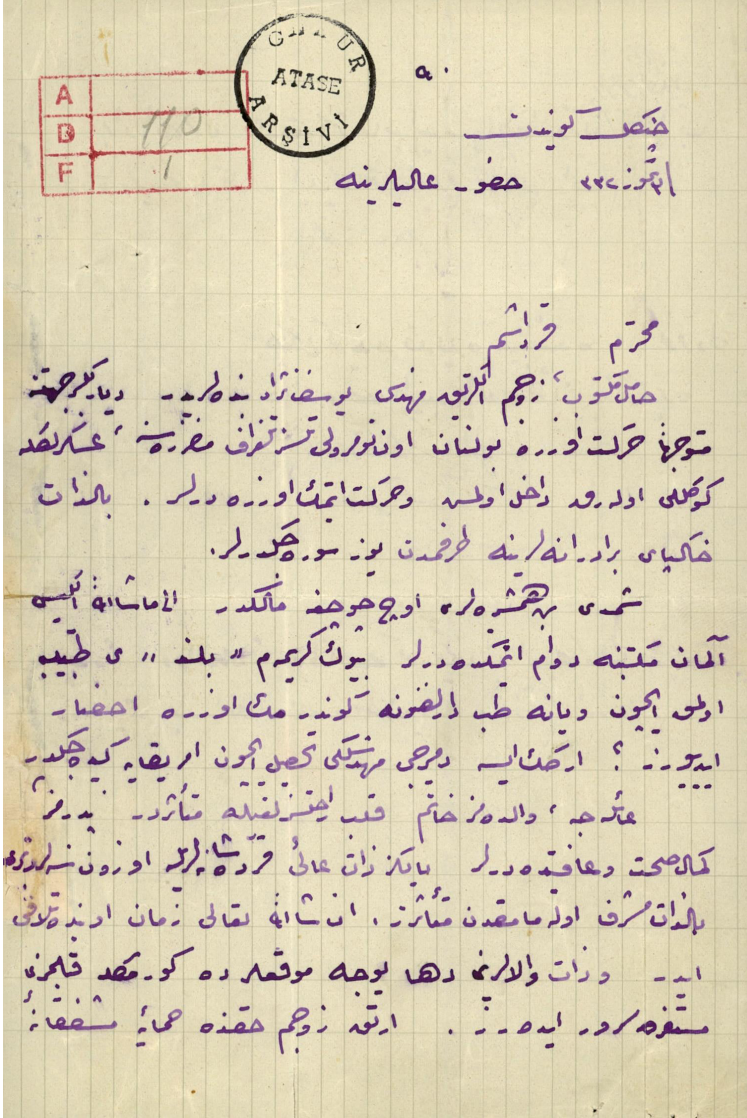 GNKUR
ATASE
ARŞİVİ
A
D 110
F 1
٥٠
کویندن
تموز ٣٣٢ حضور عالیلرینه
محترم قرداشم
حامل مکتوب، زوجم الکتریق مهندسی یوسف نژاد بنده‌لریدر دیاربکر جهتنه
متوجهاً حرکت اوزره بولنان اون نومرولی تلسز تلغراف مفرزه‌سنه، عسکرلکده
کوکللی اوله‌رق داخل اولمش وحرکت ایتمك اوزره درلر . بالذات
خاکپای برادرانه‌لرینه طرفمدن یوز سوره‌جکدرلر.
شمدی بن همشیره‌لری اوچ چوجغه مالکدر الی ماشاالله ایکیسی
آلمان مکتبنه دوام ایتمکده‌درلر بیوك کریمه‌م " بلند " ی طبیب
اولمق ایچون ویانه طب دارالفنونه کوندرمك اوزره احضار
ایدیورز ؛ ارکك ایسه مهندسلکی تحصیل ایچون امریقایه کیده‌جکدر
عائله‌جه، والده‌مز خانم قلب راحتسزلغیله متأثردر پدرمز
کمال صحت وعافیتده‌درلر یالکز ذات عالئ قرداشانه‌لریله اوزون سنه‌لردنبری
بالذات مشرف اوله‌مامقدن متأثرز . ان شاالله تعالی زمان اونی ده تلافی
ایدر وذات والالرینی دها یوجه موقعلرده کورمکله قلبلرمزی
مستغرق سرور ایده‌رز . ارتق زوجم حقنده حمایۀ مشفقانۀ